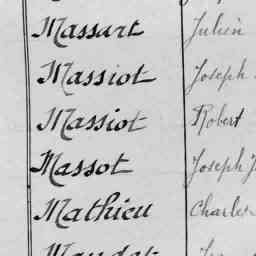 Massart Julien
Massiot Joseph
Massiot Robert
Massot Joseph
Mathieu Charles